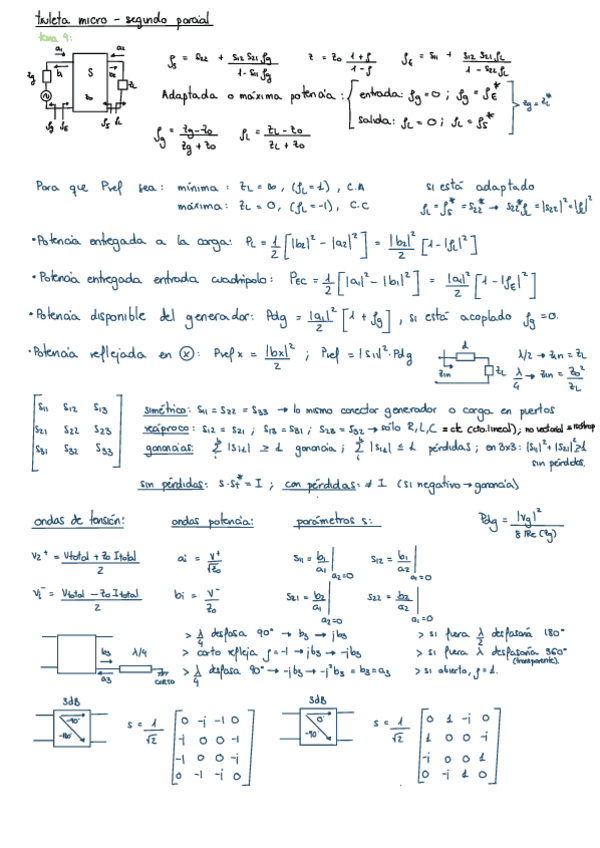 txuleta micro - segundo parcial
tema 4:
a₁ a₂
b₁ S b₂
Zg Z₀ ZL
ρg ρE ρS ρL
ρS = S22 + S12 S21 ρg / 1 - S11 ρg   Z = Z₀ 1+ρ / 1-ρ   ρE = S11 + S12 S21 ρL / 1 - S22 ρL
Adaptada o máxima potencia: { entrada: ρg = 0 ; ρg = ρE*
salida: ρL = 0 ; ρL = ρS* } Zg = ZL*
ρg = Zg - Z₀ / Zg + Z₀   ρL = ZL - Z₀ / ZL + Z₀
Para que Pref sea: mínima: ZL = ∞, (ρL = 1), C.A   si está adaptado
máxima: ZL = 0, (ρL = -1), C.C   ρL = ρS* = S22* → S22* ρL = |S22|² = |ρL|²
• Potencia entregada a la carga: PL = 1/2 [|b2|² - |a2|²] = |b2|²/2 [1 - |ρL|²]
• Potencia entregada entrada cuadripolo: PEC = 1/2 [|a1|² - |b1|²] = |a1|²/2 [1 - |ρE|²]
• Potencia disponible del generador: Pdg = |a1|²/2 [1 + ρg], si está acoplado ρg = 0.
• Potencia reflejada en ⓧ: Pref x = |bx|²/2 ; Pref = |S11|² · Pdg   d   Zin   ZL   λ/2 → Zin = ZL
λ/4 → Zin = Z₀²/ZL
S11 S12 S13   simétrico: S11 = S22 = S33 → lo mismo conectar generador o carga en puertos
S21 S22 S23   recíproco: S12 = S21 ; S13 = S31 ; S23 = S32 → sólo R, L, C = cte (cto. lineal); no vectorial =
S31 S32 S33   ganancias: Σ |Si1| ≥ 1 ganancia ; Σ |Si1| ≤ 1 pérdidas ; en 3x3: |S11|² + |S21|² ≥ 1
sin pérdidas.
sin pérdidas: S·St* = I ; con pérdidas: ≠ I (si negativo → ganancia)
ondas de tensión:   ondas potencia:   parámetros s:   Pdg = |Vg|² / 8 Re(Zg)
V2⁺ = Vtotal + Z₀ Itotal / 2   ai = V⁺ / √Z₀   S11 = b1/a1 | a2=0   S12 = b1/a2 | a1=0
Vi⁻ = Vtotal - Z₀ Itotal / 2   bi = V⁻ / Z₀   S21 = b2/a1 | a2=0   S22 = b2/a2 | a1=0
b3 λ/4 a3 CORTO
> λ/4 desfasa 90° → b3 → jb3   > si fuera λ/2 desfasaría 180°
> corto refleja ρ = -1 → jb3 → -jb3   > si fuera λ desfasaría 360° (transparente).
> λ/4 desfasa 90° → -jb3 → -j²b3 = b3 = a3   > si abierto, ρ = 1.
3dB   3dB
-90°   0°
-180°   -90°
S = 1/√2   S = 1/√2
0 -j -1 0   0 1 -j 0
-j 0 0 -1   1 0 0 -j
-1 0 0 -j   -j 0 0 1
0 -1 -j 0   0 -j 1 0